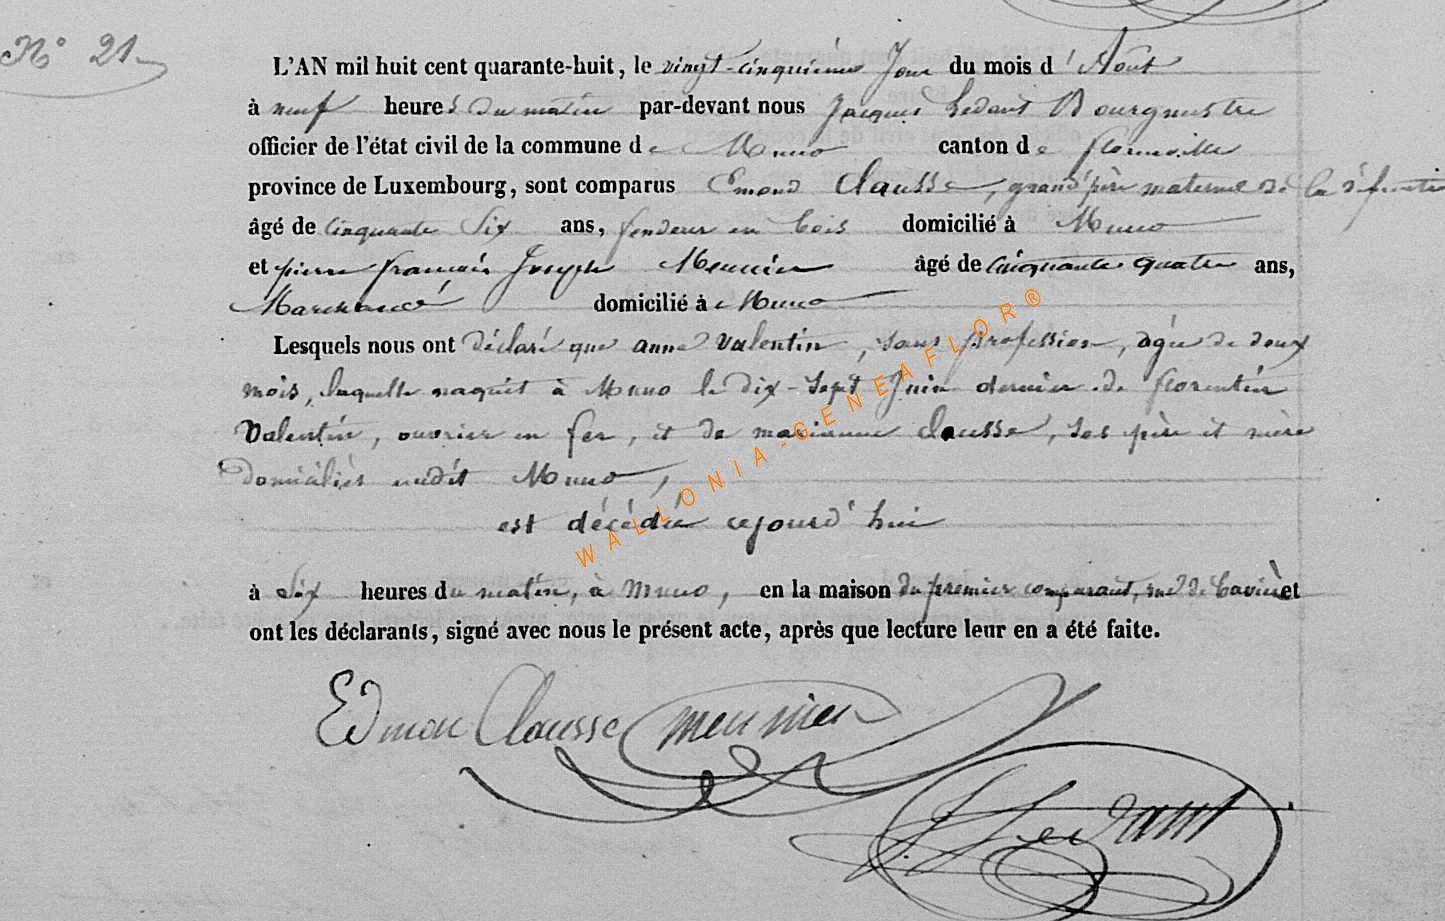 N° 21
L'AN mil huit cent quarante-huit, le vingt-cinquième jour du mois d'Août
à neuf heures du matin par-devant nous Jacques Ledant Bourgmestre
officier de l'état civil de la commune de Muno canton de florenville
province de Luxembourg, sont comparus Emond Clausse, grand père maternel de la défunte
âgé de cinquante Six ans, fendeur en bois domicilié à Muno
et pierre françois Joseph Meunier âgé de cinquante quatre ans,
domicilié à Muno
Lesquels nous ont déclaré que anne Valentin, sans profession, agée de deux
mois, laquelle naquit à Muno le dix-Sept Juin dernier de florentin
Valentin, ouvrier en fer, et de marianne Clausse, ses père et mère
domiciliés audit Muno,
est décédée cejourd'hui
à Six heures du matin, à Muno, en la maison du premier comparant, rue de et
ont les déclarants, signé avec nous le présent acte, après que lecture leur en a été faite.
Edmon Clausse meunier
J. Ledant
WALLONIA-GENEAFLOR®